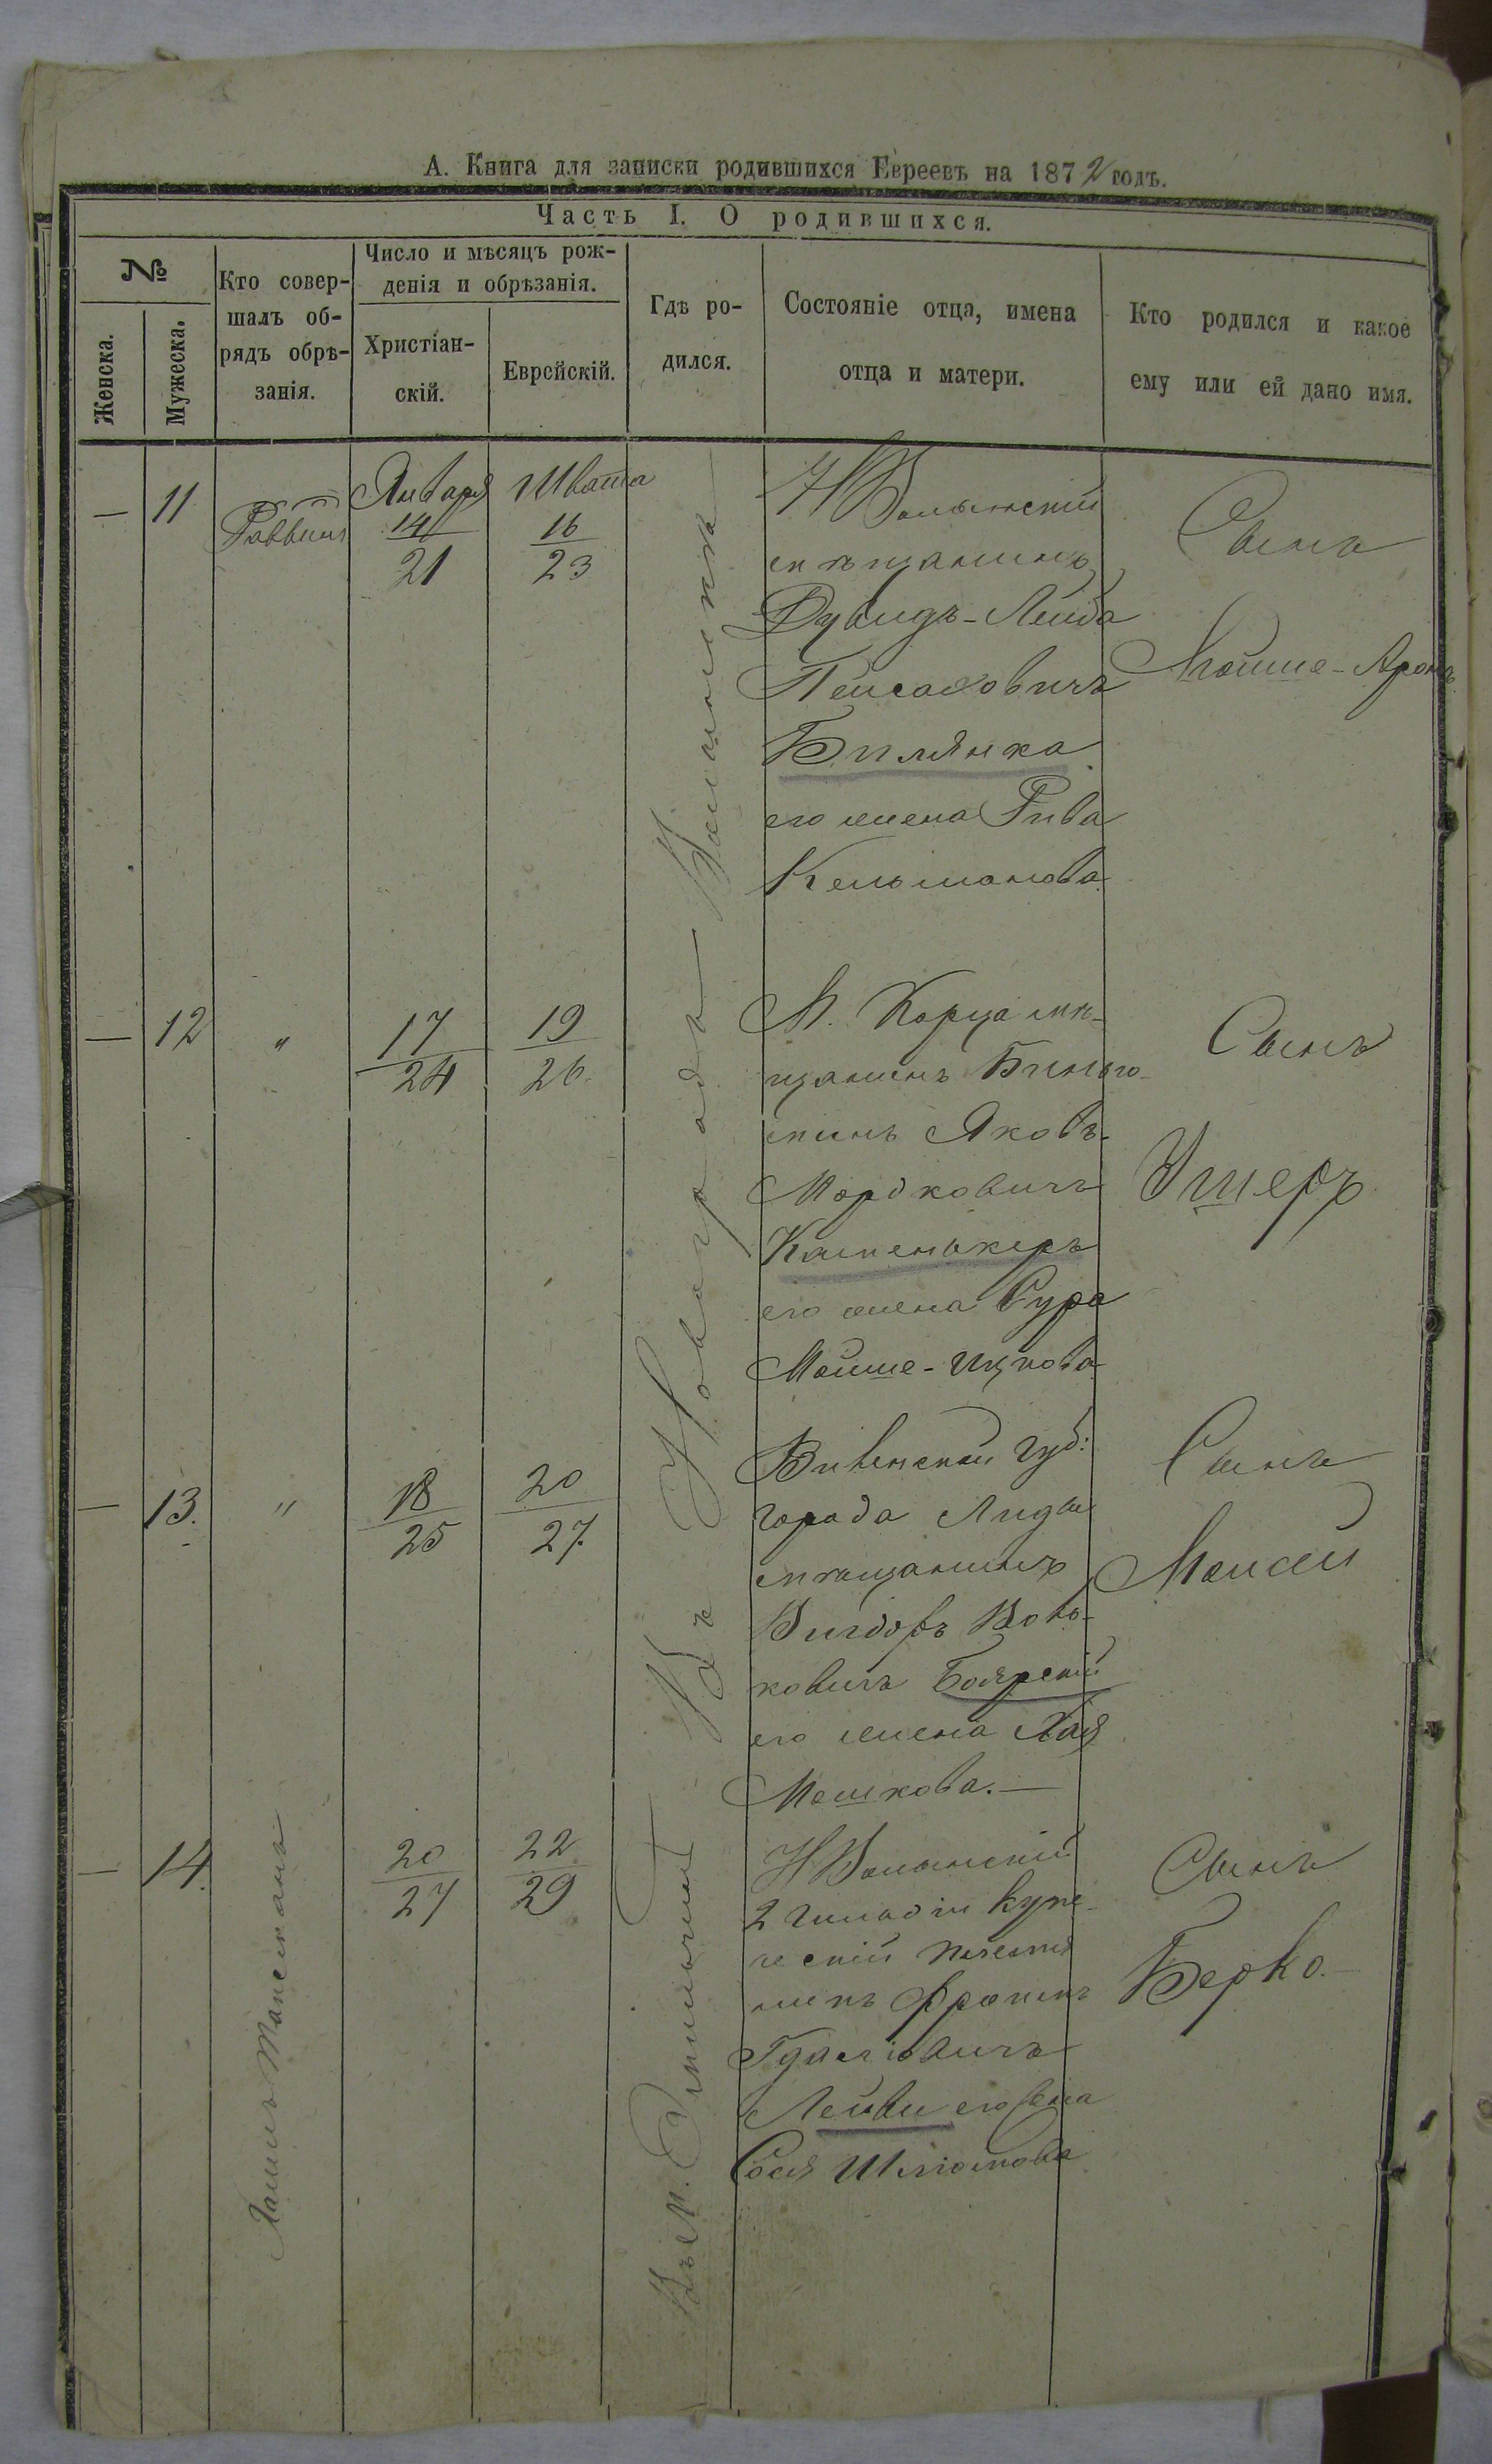 А. Книга для записки родившихся Евреевъ на 1872 годъ.
Часть I. О родившихся.
№
Женска.
Мужеска.
Кто совершалъ обрядъ обрѣзанія.
Число и мѣсяцъ рожденія и обрѣзанія.
Христіанскій.
Еврейскій.
Гдѣ родился.
Состояніе отца, имена отца и матери.
Кто родился и какое ему или ей дано имя.
— 11 Раввинъ
Января 14/21
Швата 16/23
НВолынскій
мѣщанинъ
Дувидъ-Лейба
Пейсаховичъ
Билянка
его жена Рива
Кельманова
Сынъ
Мойше-Аронъ
— 12 " 17/24 19/26
М. Корца мѣ-
щанинъ Бинью-
минъ Яковъ-
Мордковичъ
Каменькеръ
его жена Сура
Мойше-Ицкова
Сынъ
Ушеръ
— 13. " 18/25 20/27.
Виленской губ:
города Лиды
мѣщанинъ
Вигдоръ Воль-
ковичъ Боярскій
его жена Хая
Мошкова.—
Сынъ
Моисей
— 14. 20/27 22/29
НВолынскій
2 гильдіи купе-
ческій
Гдаліовичъ
Лейви его жена
Сося Шліомова
Сынъ
Берко.—
Въ Новоградъ Волынскѣ